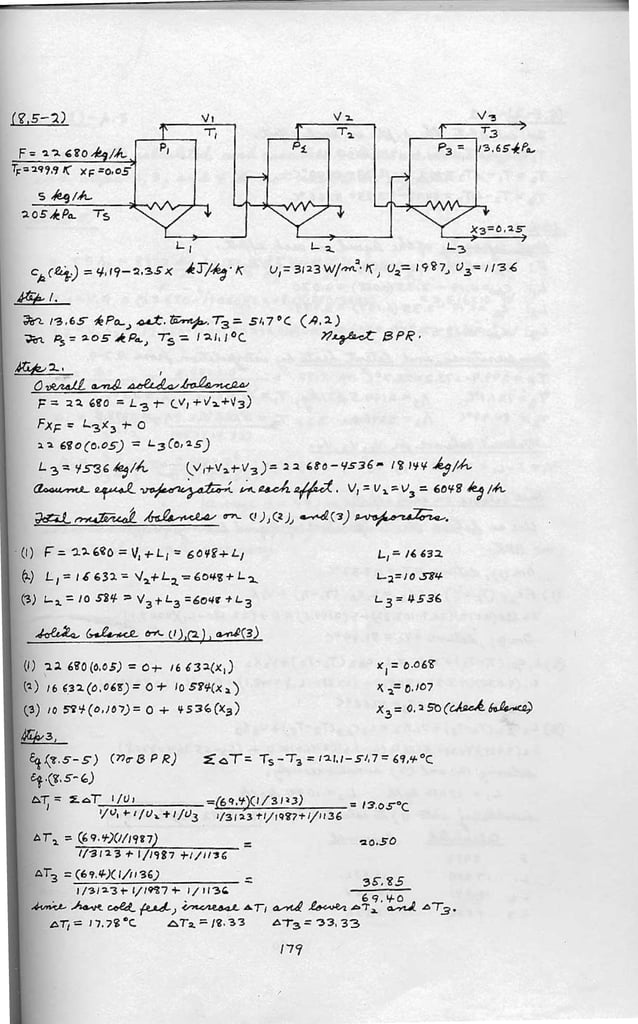 (8.5-2)
V1 V2 V3
T1 T2 T3
P1 P2 P3 = 13.65 kPa
F = 22 680 kg/h
TF = 299.9 K XF = 0.05
S kg/h
205 kPa TS
X3 = 0.25
L1 L2 L3
cp (liq.) = 4.19 - 2.35x kJ/kg·K U1 = 3123 W/m²·K, U2 = 1987, U3 = 1136
Step 1.
For 13.65 kPa, sat. temp. T3 = 51.7°C (A.2)
For PS = 205 kPa, TS = 121.1°C Neglect BPR.
Step 2.
Overall and solids balances
F = 22 680 = L3 + (V1 + V2 + V3)
FXF = L3X3 + 0
22 680 (0.05) = L3 (0.25)
L3 = 4536 kg/h (V1+V2+V3) = 22 680 - 4536 = 18 144 kg/h
Assume equal vaporization in each effect. V1 = V2 = V3 = 6048 kg/h
Total material balances on (1), (2), and (3) evaporators.
(1) F = 22 680 = V1 + L1 = 6048 + L1 L1 = 16 632
(2) L1 = 16 632 = V2 + L2 = 6048 + L2 L2 = 10 584
(3) L2 = 10 584 = V3 + L3 = 6048 + L3 L3 = 4536
solids balance on (1), (2), and (3)
(1) 22 680 (0.05) = 0 + 16 632 (X1) X1 = 0.068
(2) 16 632 (0.068) = 0 + 10 584 (X2) X2 = 0.107
(3) 10 584 (0.107) = 0 + 4536 (X3) X3 = 0.250 (check balance)
Step 3.
Eq (8.5-5) (no BPR) ΣΔT = TS - T3 = 121.1 - 51.7 = 69.4°C
Eq. (8.5-6)
ΔT1 = ΣΔT 1/U1 = (69.4)(1/3123) = 13.05°C
1/U1 + 1/U2 + 1/U3 1/3123 + 1/1987 + 1/1136
ΔT2 = (69.4)(1/1987) = 20.50
1/3123 + 1/1987 + 1/1136
ΔT3 = (69.4)(1/1136) = 35.85
1/3123 + 1/1987 + 1/1136 69.40
since have cold feed, increase ΔT1 and lower ΔT2 and ΔT3.
ΔT1 = 17.78°C ΔT2 = 18.33 ΔT3 = 33.33
179